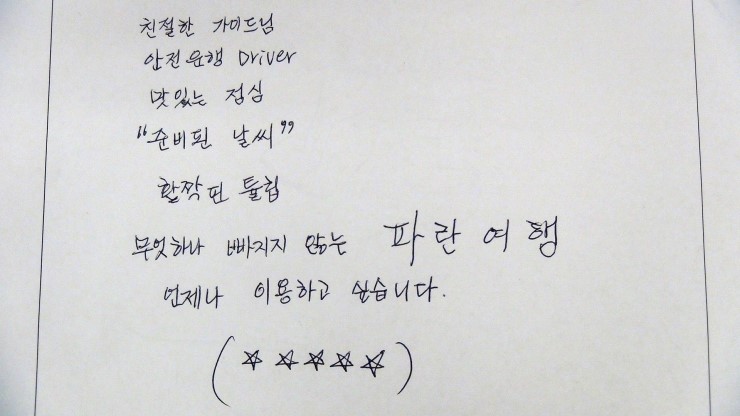 친절한 가이드님
안전운행 Driver
맛있는 점심
“준비된 날씨”
활짝핀 튤립
무엇하나 빠지지 않는 파란여행
언제나 이용하고 싶습니다.
(☆☆☆☆☆)